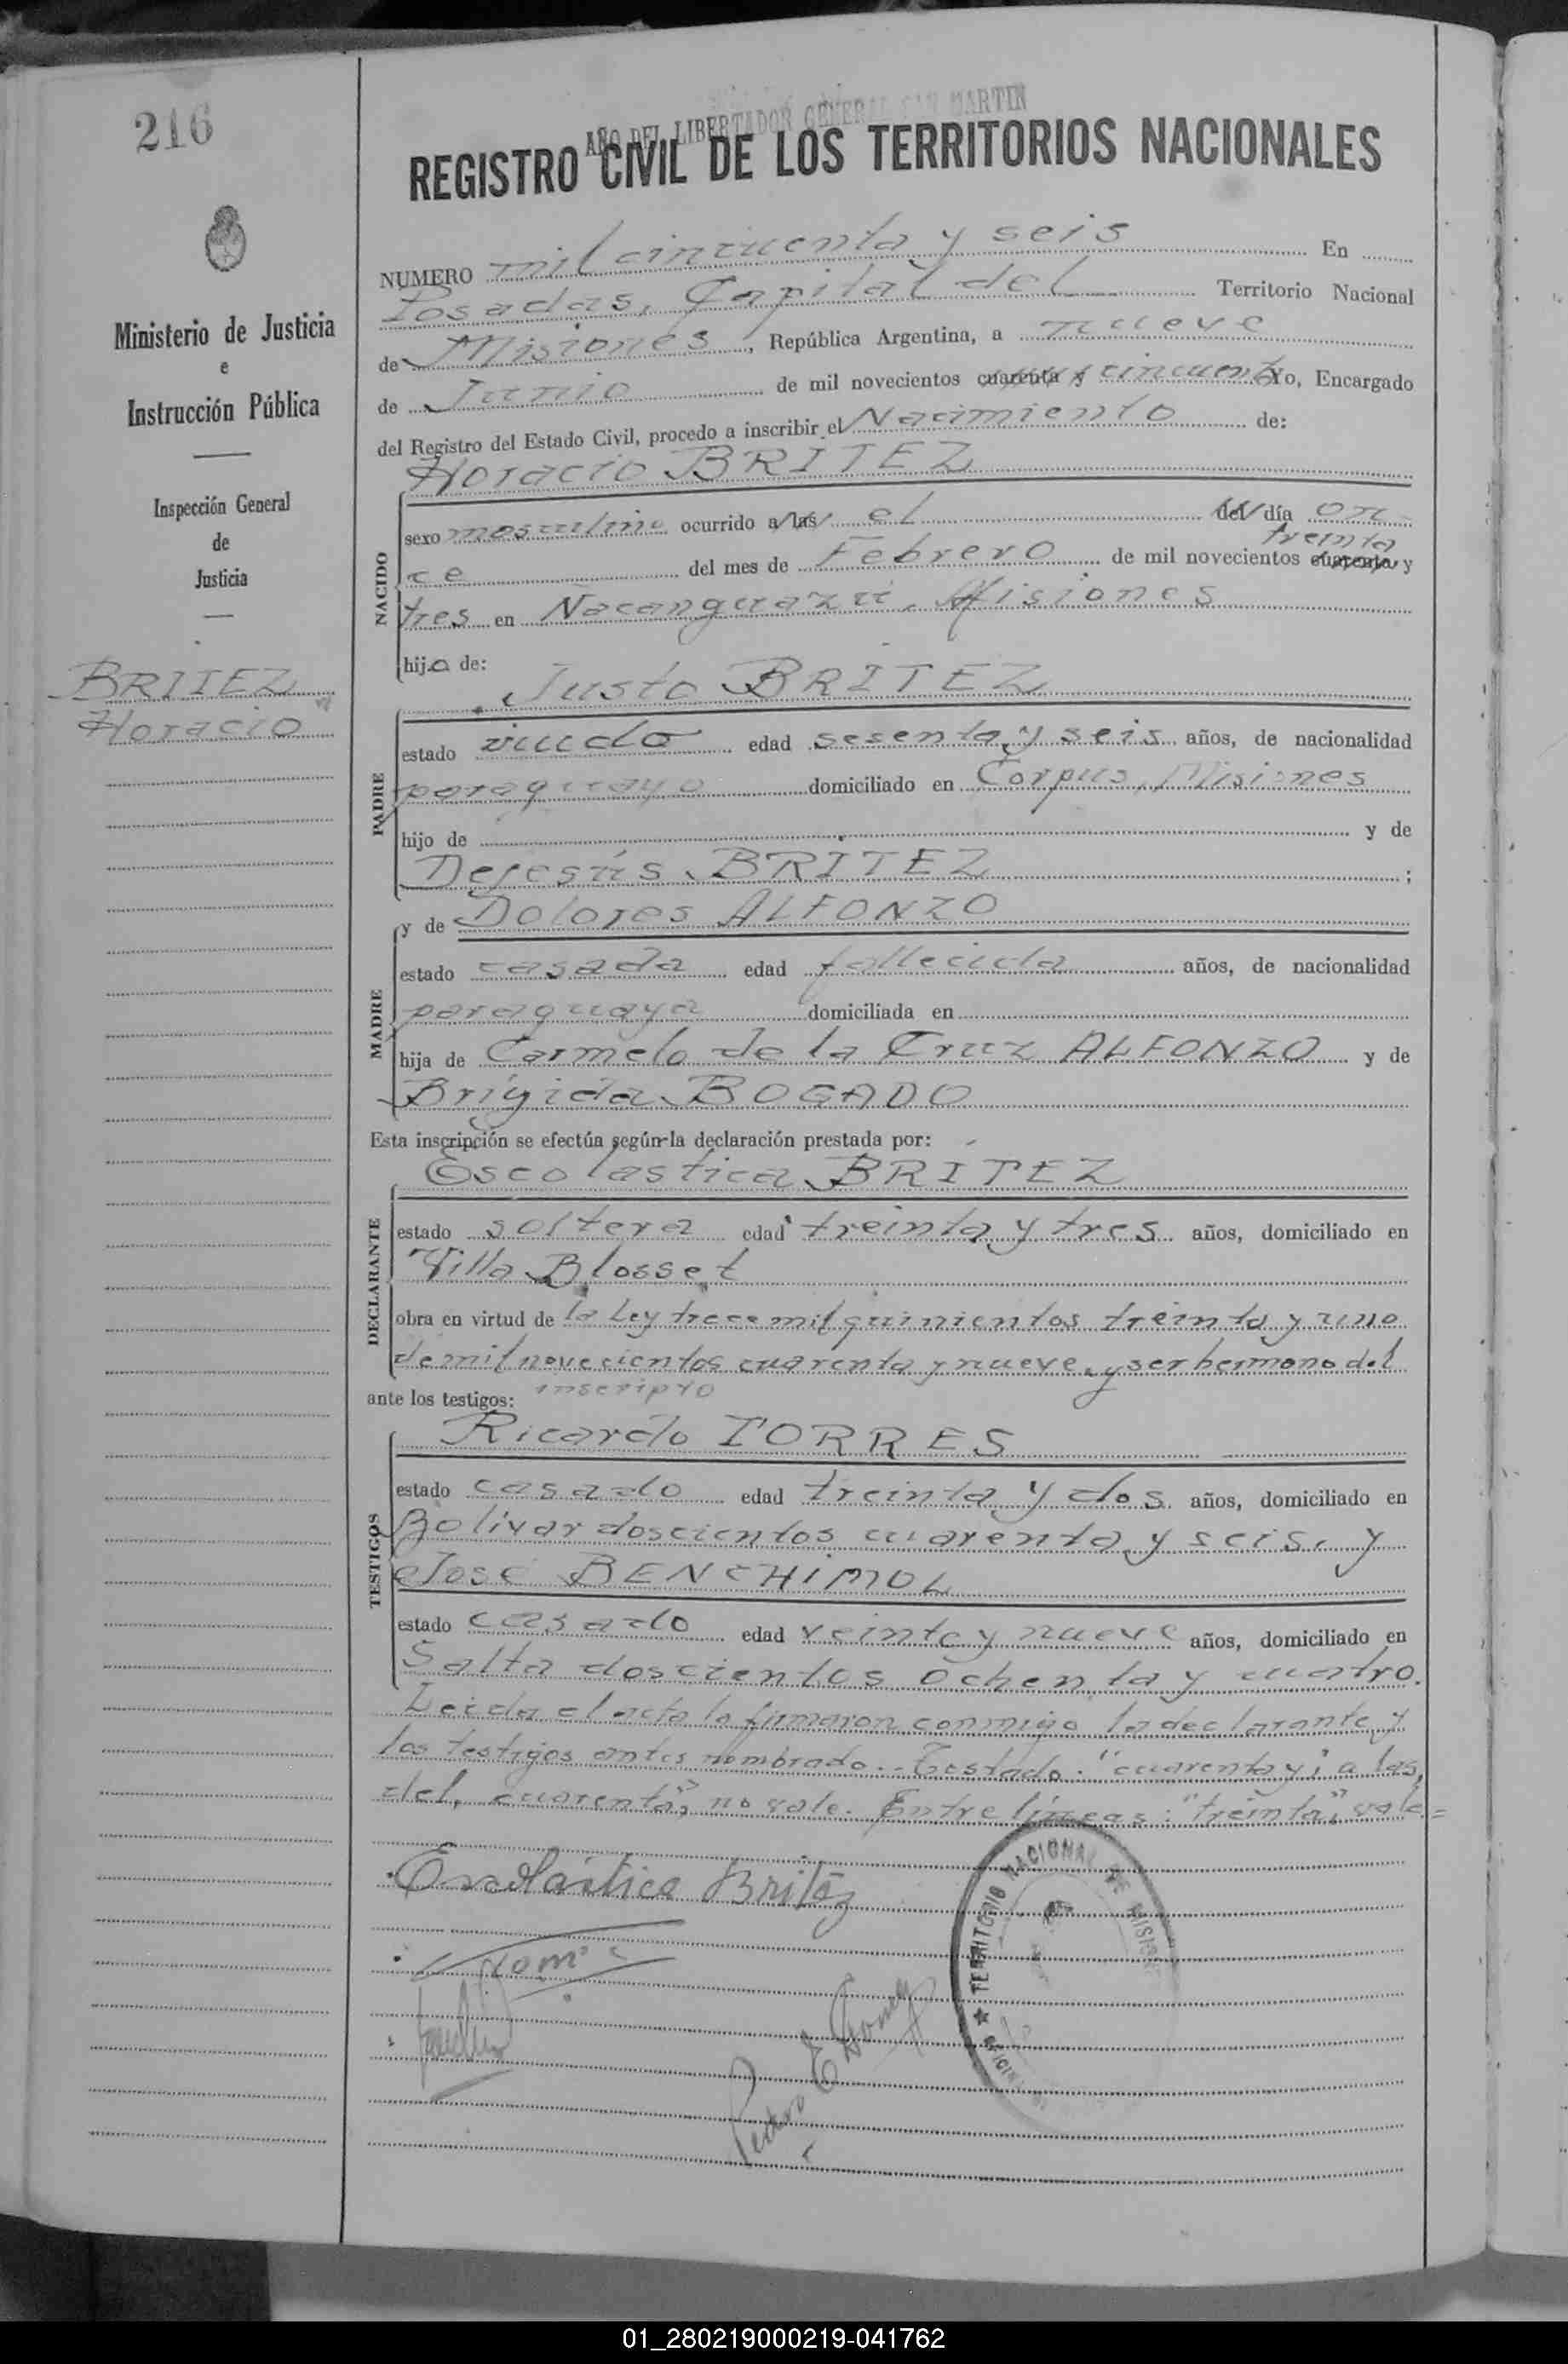 216
AÑO DEL LIBERTADOR GENERAL SAN MARTIN
REGISTRO CIVIL DE LOS TERRITORIOS NACIONALES
Ministerio de Justicia
e
Instrucción Pública
Inspección General
de
Justicia
BRITEZ
Horacio
NUMERO mil cincuenta y seis En
Posadas, Capital del Territorio Nacional
de Misiones, República Argentina, a nueve
de Junio de mil novecientos cuarenta y cincuenta Yo, Encargado
del Registro del Estado Civil, procedo a inscribir el Nacimiento de:
Horacio BRITEZ
NACIDO
sexo masculino ocurrido a las el del día on
treinta
ce del mes de Febrero de mil novecientos cuarenta y
tres en Ñacanguazú, Misiones
hijo de:
Justo BRITEZ
PADRE
estado viudo edad sesenta y seis años, de nacionalidad
paraguayo domiciliado en Corpus, Misiones
hijo de y de
Dejesús BRITEZ ;
y de Dolores ALFONZO
MADRE
estado casada edad fallecida años, de nacionalidad
paraguaya domiciliada en
hija de Carmelo de la Cruz ALFONZO y de
Brígida BOGADO
Esta inscripción se efectúa según la declaración prestada por:
Escolastica BRITEZ
DECLARANTE
estado soltera edad treinta y tres años, domiciliado en
Villa Blosset
obra en virtud de la Ley trece mil quinientos treinta y uno
de mil novecientos cuarenta y nueve, y ser hermano del
ante los testigos: inscripto
Ricardo TORRES
TESTIGOS
estado casado edad treinta y dos años, domiciliado en
Bolívar doscientos cuarenta y seis, y
José BENCHIMOL
estado casado edad veinte y nueve años, domiciliado en
Salta doscientos ochenta y cuatro.
Leida el acta la firmaron conmigo la declarante y
los testigos antes nombrado.- Testado: "cuarenta y; a las,
del, cuarenta", no vale. Entre líneas: "treinta", vale=
Escolástica Britéz
Pedro E Gomez
TERRITORIO NACIONAL DE MISIONES
01_280219000219-041762